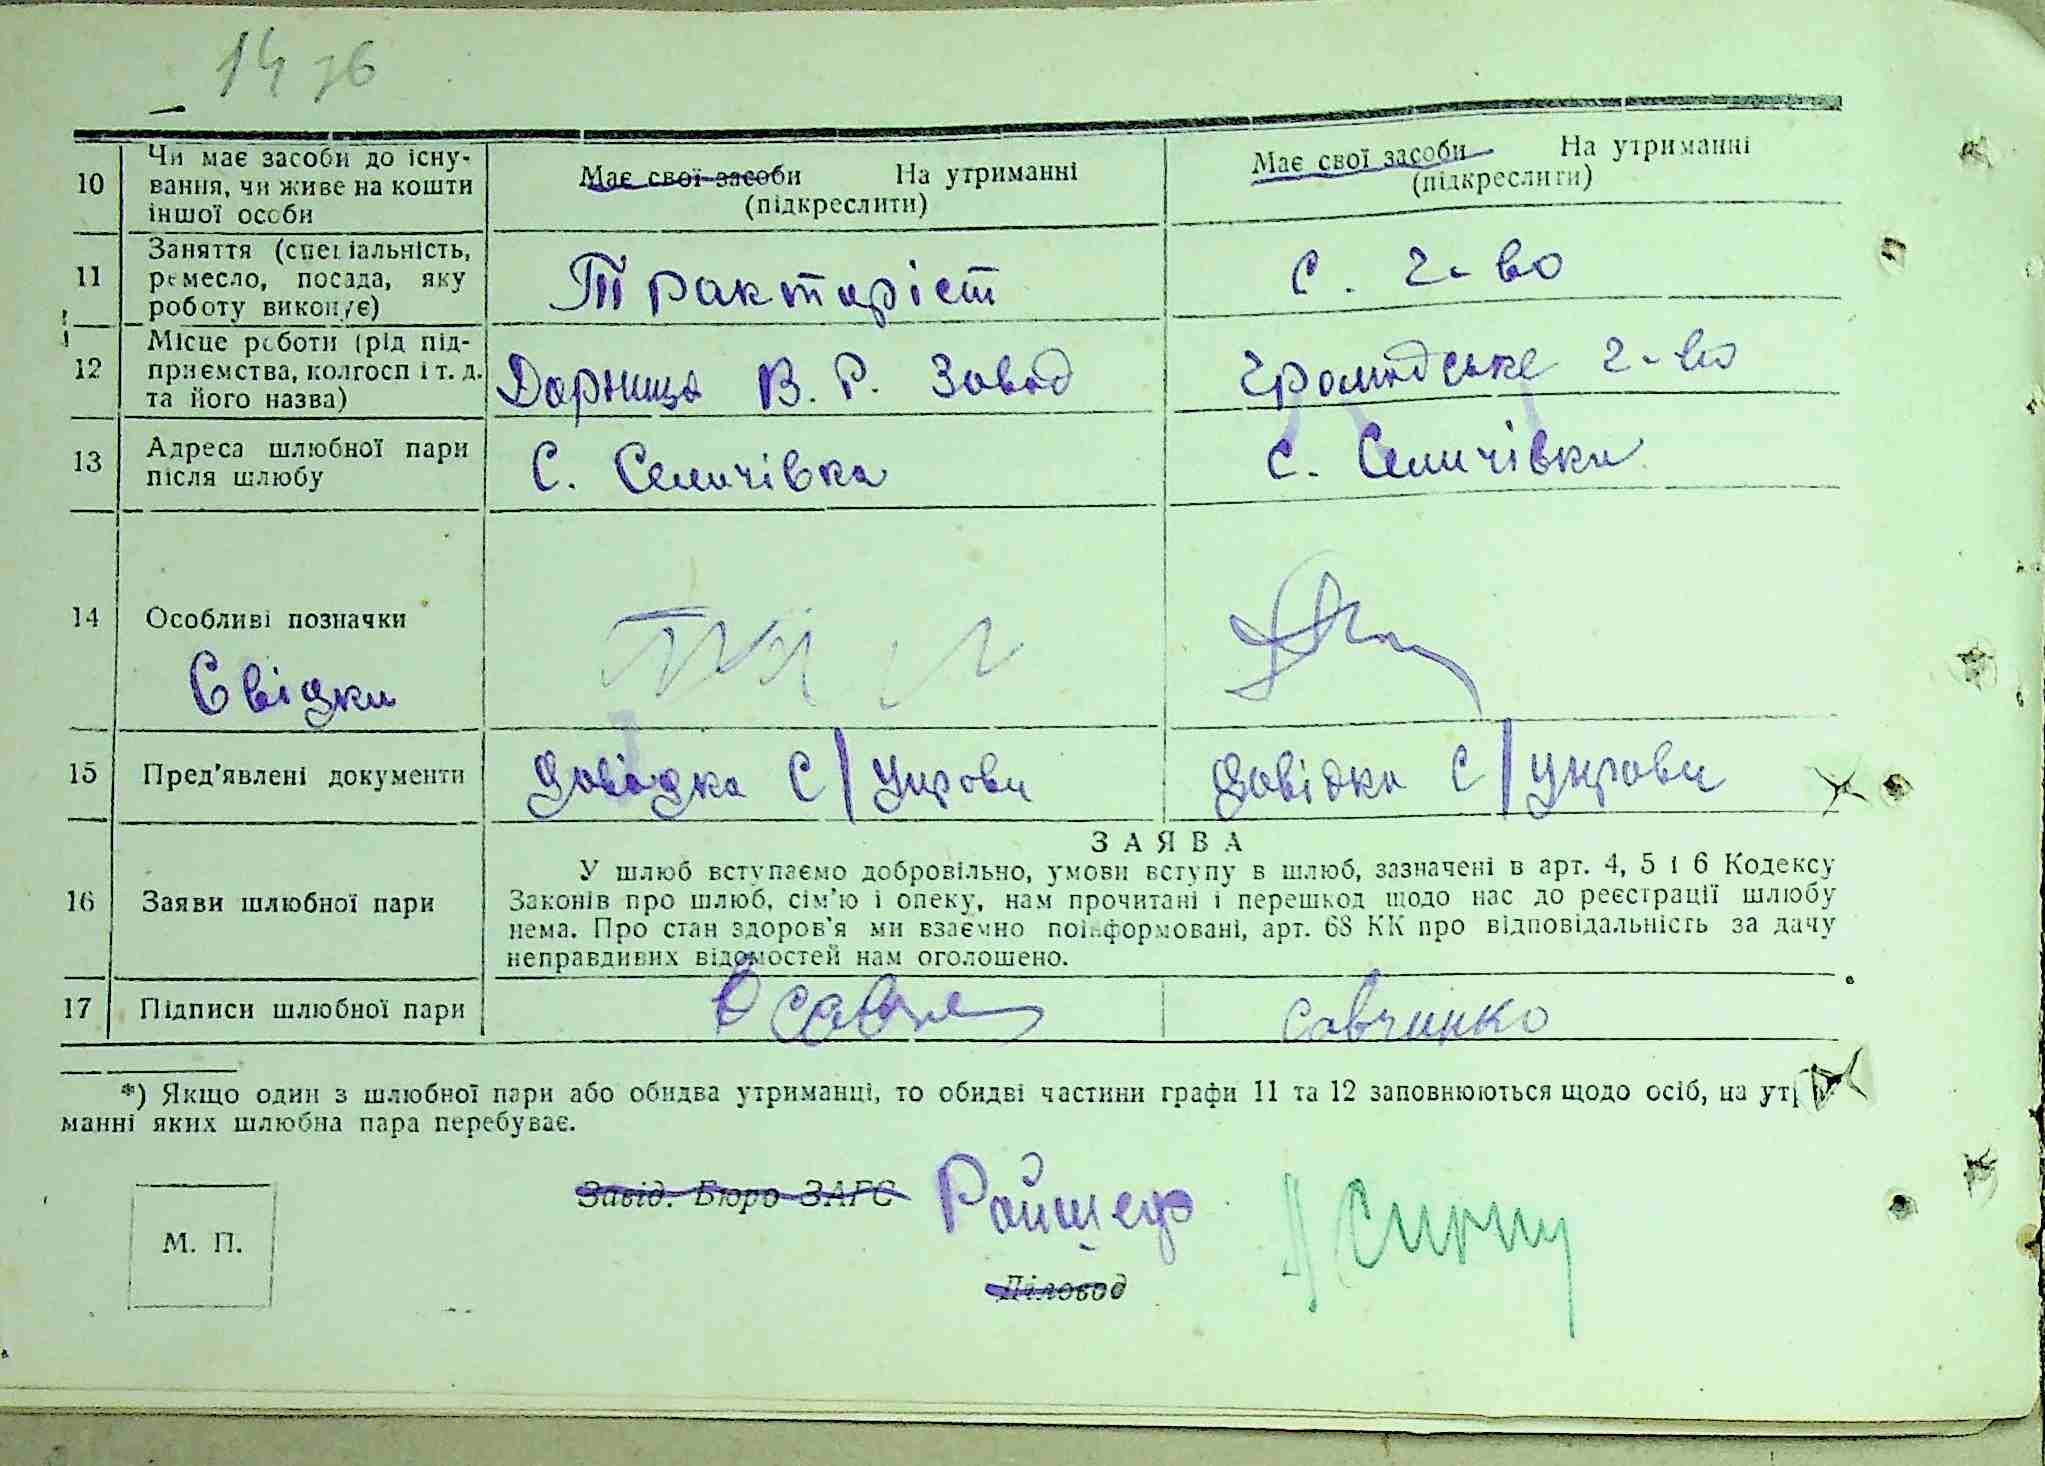 14 зв
10 Чи має засоби до існування, чи живе на кошти іншої особи
Має свої засоби На утриманні
(підкреслити)
Має свої засоби На утриманні
(підкреслити)
11 Заняття (спеціальність, ремесло, посада, яку роботу виконує)
Тракторіст
с. г-во
12 Місце роботи (рід підприємства, колгосп і т. д. та його назва)
Дарниця В. Р. Завод
Громадське г-во
13 Адреса шлюбної пари після шлюбу
С. Селичівка
с. Селичівка
14 Особливі позначки
Свідки
15 Пред'явлені документи
Довідка С/Управи
Довідка С/Управи
16 Заяви шлюбної пари
ЗАЯВА
У шлюб вступаємо добровільно, умови вступу в шлюб, зазначені в арт. 4, 5 і 6 Кодексу
Законів про шлюб, сім'ю і опеку, нам прочитані і перешкод щодо нас до реєстрації шлюбу
нема. Про стан здоров'я ми взаємно поінформовані, арт. 68 КК про відповідальність за дачу
неправдивих відомостей нам оголошено.
17 Підписи шлюбної пари
савчинко
*) Якщо один з шлюбної пари або обидва утриманці, то обидві частини графи 11 та 12 заповнюються щодо осіб, на утри-
манні яких шлюбна пара перебуває.
Завід. Бюро ЗАГС Райшеф
М. П.
Діловод